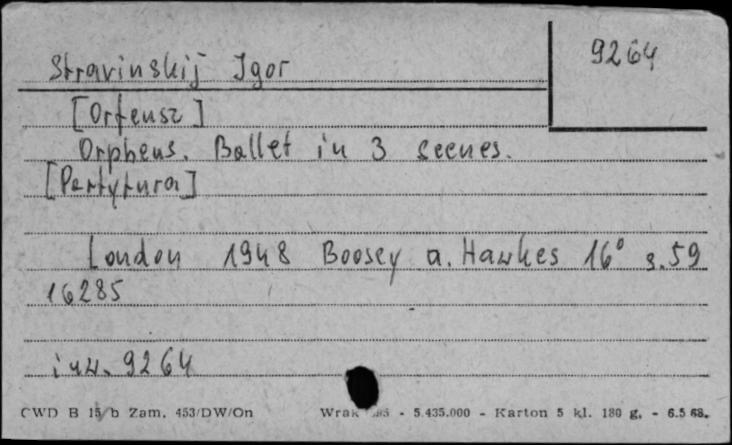 9264
Stravinskij Igor
[Orfeusz]
Orpheus. Ballet in 3 scenes.
[Partytura]
London 1948 Boosey a. Hawkes 16° s. 59
16285
inw. 9264
CWD B 15/b Zam. 453/DW/On Wrak - 5.435.000 - Karton 5 kl. 180 g. - 6.5 68.